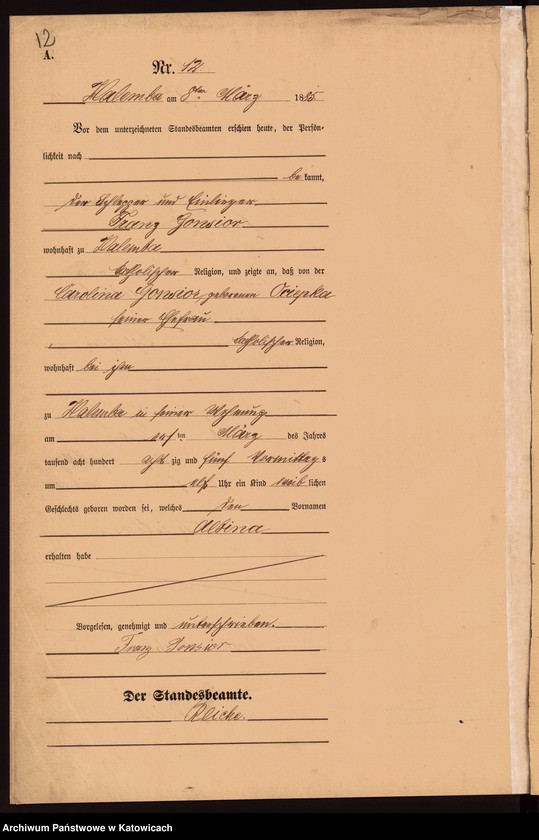 12
A.
Nr. 12
Halemba am 8ten März 1885
Vor dem unterzeichneten Standesbeamten erschien heute, der Persön-
lichkeit nach
be kannt,
der Schlepper und Einlieger
Franz Gonsior
wohnhaft zu Halemba
katholischer Religion, und zeigte an, daß von der
Carolina Gonsior, geborenen
seiner Ehefrau
katholischer Religion,
wohnhaft bei ihm
zu Halemba in seiner Wohnung
am ten März des Jahres
tausend acht hundert acht zig und fünf Vormittag s
um elf Uhr ein Kind weib lichen
Geschlechts geboren worden sei, welches den Vornamen
Albina
erhalten habe
Vorgelesen, genehmigt und unterschrieben.
Franz Gonsior
Der Standesbeamte.
Reiche.
Archiwum Państwowe w Katowicach